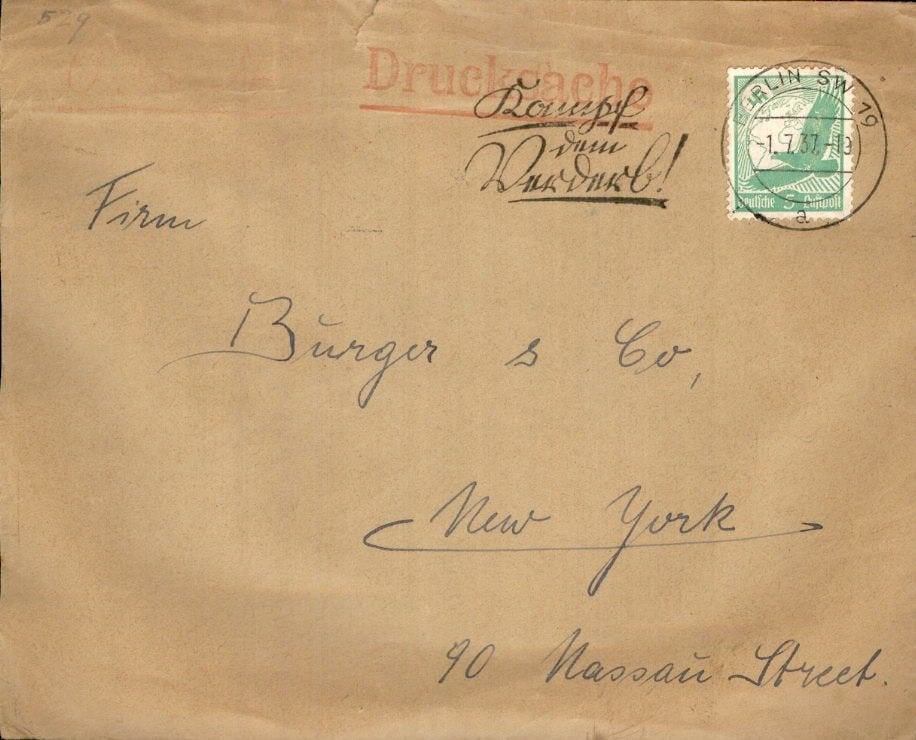 529
Drucksache
Kampf
dem
Verderb!
BERLIN SW 19
-1.7.37.-19
a
Deutsche 5 Luftpost
Firm
Burger & Co,
New York
90 Nassau Street.